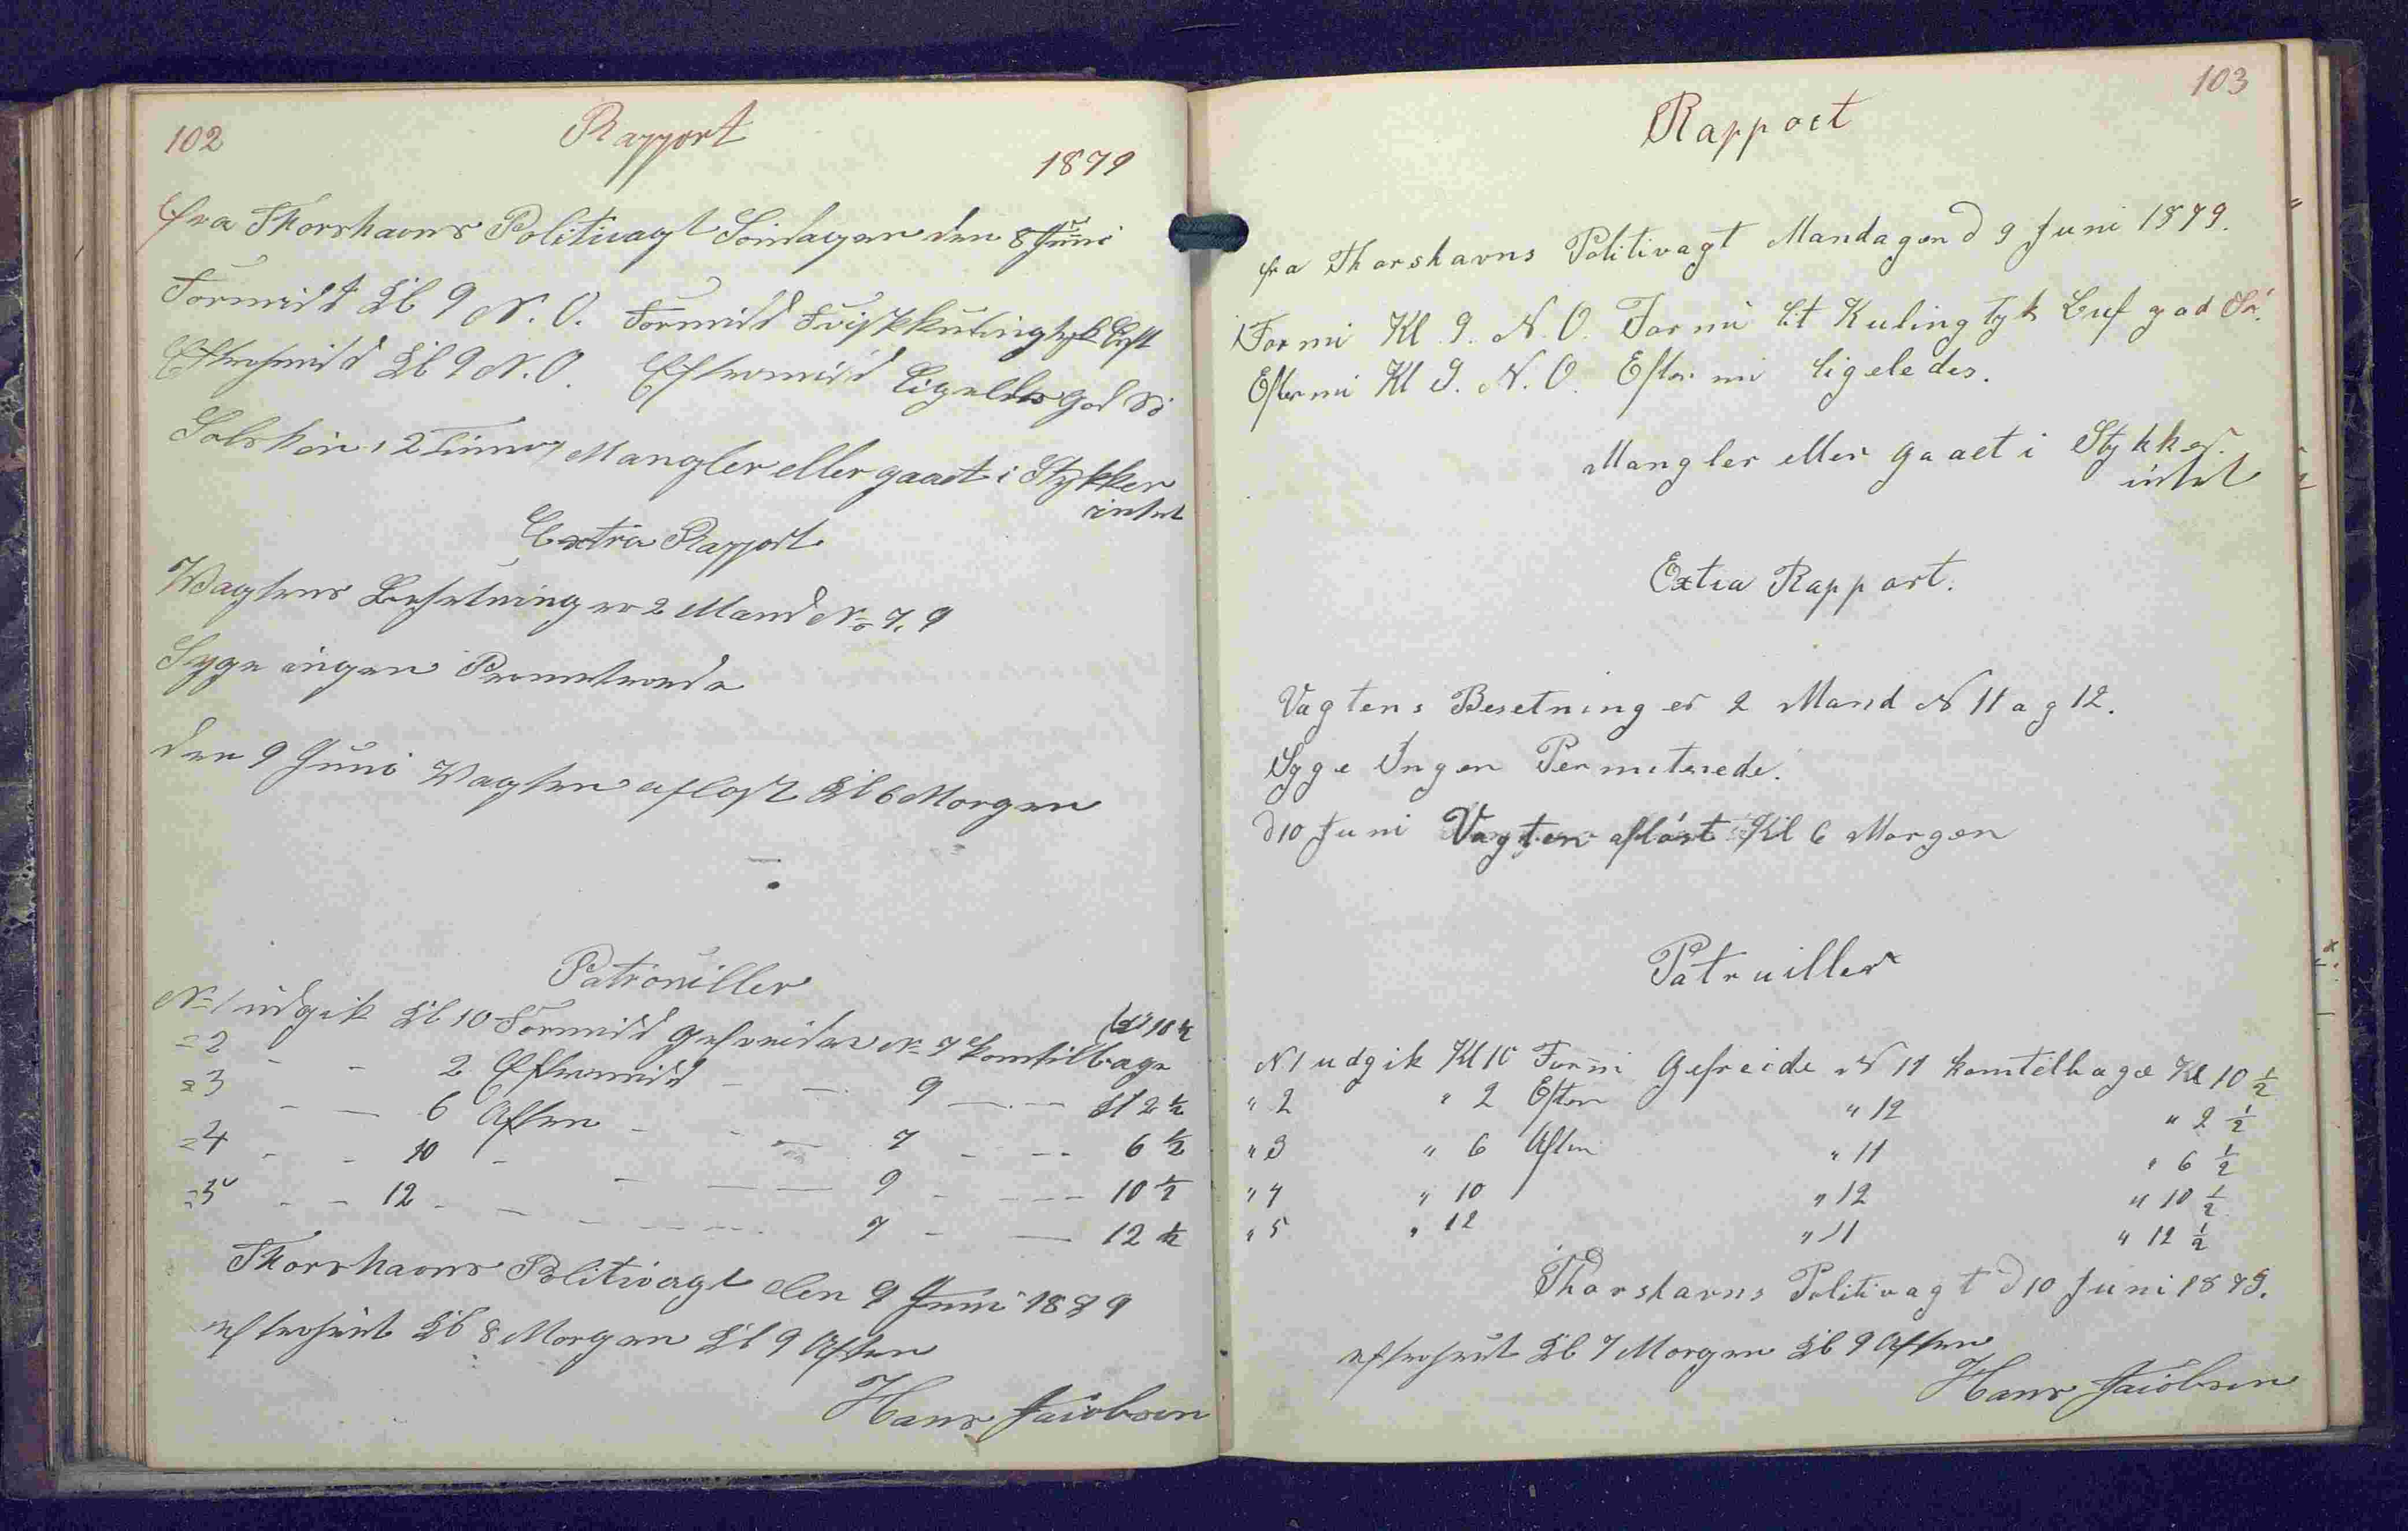 102
Rapport
1879
fra Thorshavns Politivagt Søndagen den 8 Juni
Formidd Kl 9 N. O. Formidd Friskkuling tyk Luft
Eftermidd Kl 9 N. O. Eftermidd Ligeledes god Sö
Solskin 12 Timer Mangler eller gaaet i Stykker
intet
Extra Rapport
Wagtens Besetning er 2 Mand No 7, 9
Syge ingen Permetrede
den 9 Juni Wagten aflöst Kl 6 Morgen
Patrouiller
No 1 udgik Kl 10 Formidd Gefreider No 7 komtilbage Kl 10 ½
= 2 - - 2 Eftermidd - - 9 - - Kl 2 ½
= 3 - - 6 Aften - - 7 - - 6 ½
= 4 - - 10 - - - 9 - - 10 ½
= 5 - - 12 - - - 7 - - 12 ½
Thorshavns Politivagt den 9 Juni 1879
efterseet Kl 8 Morgen Kl 9 Aften
Hans Jacobsen
103
Rapport
fra Thorshavns Politivagt Mandagen d 9 Juni 1879.
Formi Kl 9. N. O. Formi let Kuling tyk Luf god Sö.
Eftermi Kl 9. N. O. Eftermi ligeledes.
Mangler eller gaaet i Stykker.
intet
Extra Rapport.
Vagtens Besetning er 2 Mand N 11 og 12.
Syge Ingen Permeterede.
d 10 Juni Vagten aflöst Kl 6 Morgen
Patruiller
N 1 udgik Kl 10 Formi Gefreide N 11 komtelbage Kl 10 ½
" 2 " 2 Efter " 12 " 2 ½
" 3 " 6 Aften " 11 " 6 ½
" 4 " 10 " 12 " 10 ½
" 5 " 12 " 11 " 12 ½
Thorshavns Politivagt d 10 Juni 1879.
efterseet Kl 7 Morgen Kl 9 Aften
Hans Jacobsen